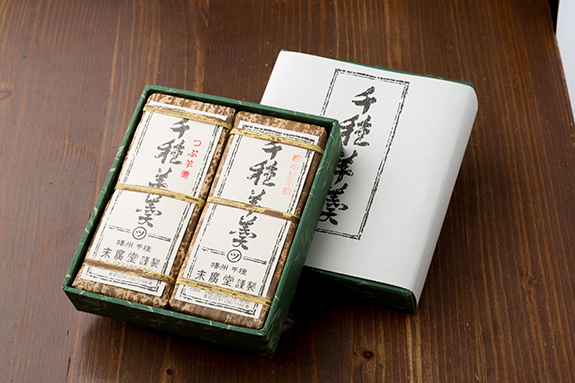 千種羊羹
つぶ羊羹
ツ
播州 千種
末廣堂謹製
千種羊羹
ツ
播州 千種
末廣堂謹製
千種羊羹